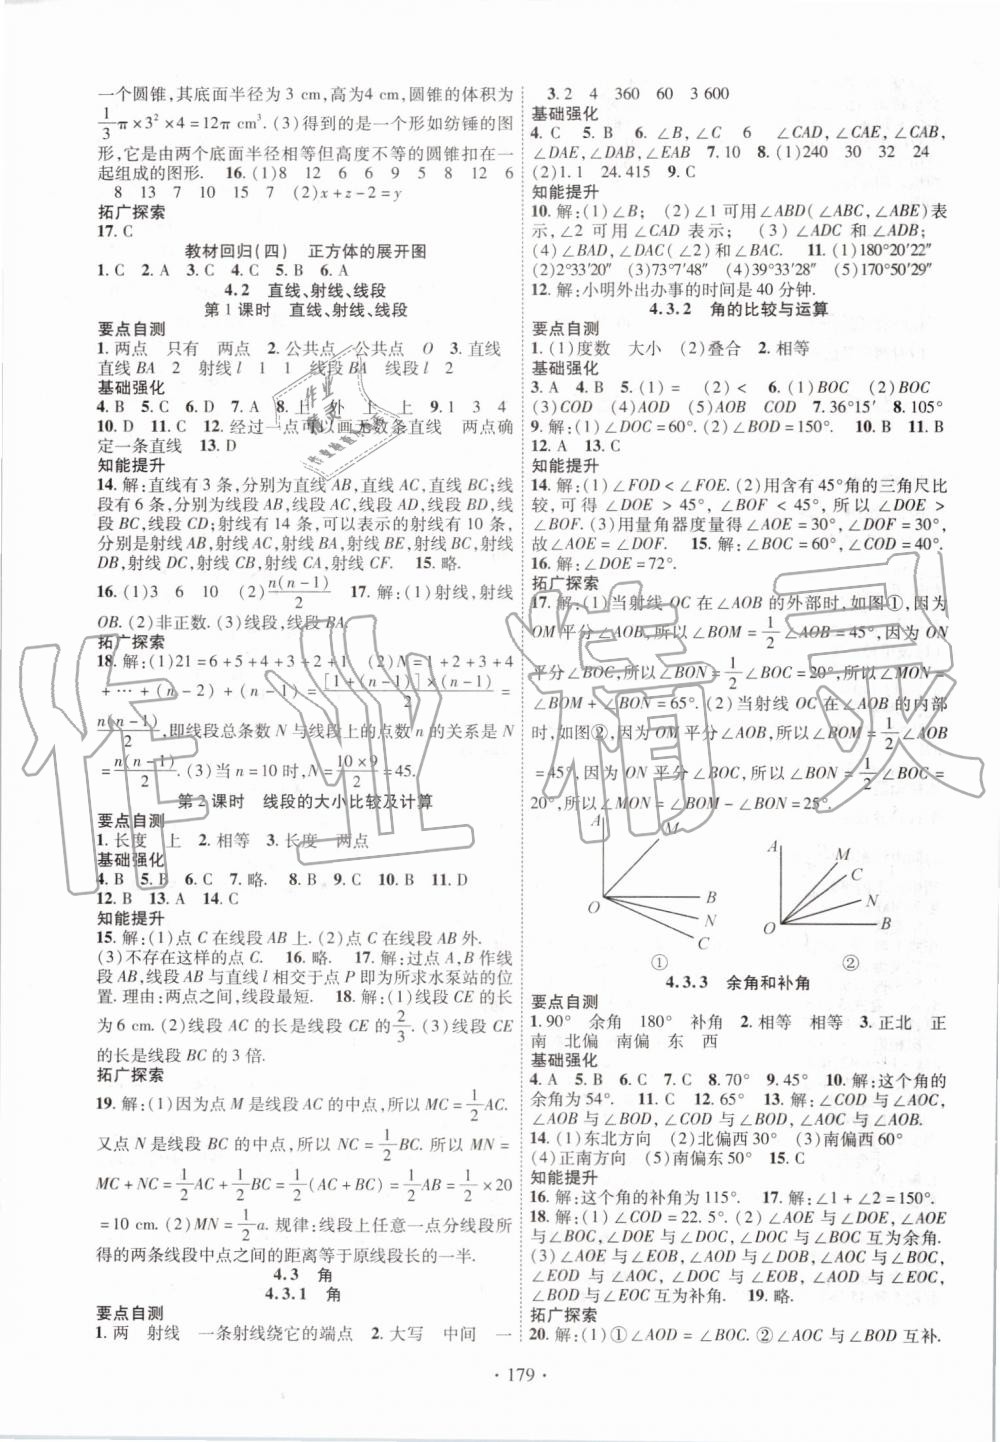 一个圆锥,其底面半径为 3 cm,高为4 cm,圆锥的体积为
1/3π×3²×4=12π cm³. (3)得到的是一个形如纺锤的图
形,它是由两个底面半径相等但高度不等的圆锥扣在一
起组成的图形. 16. (1)8 12 6 6 9 5 8 12 6
8 13 7 10 15 7 (2)x+z-2=y
拓广探索
17. C
教材回归(四) 正方体的展开图
1. C 2. A 3. C 4. C 5. B 6. A
4.2 直线、射线、线段
第1课时 直线、射线、线段
要点自测
1. 两点 只有 两点 2. 公共点 公共点 O 3. 直线
直线 BA 2 射线 l 1 1 线段 BA 线段 l 2
基础强化
4. B 5. C 6. D 7. A 8. 上 外 上 上 9. 1 3 4
10. D 11. C 12. 经过一点可以画无数条直线 两点确
定一条直线 13. D
知能提升
14. 解:直线有 3 条,分别为直线 AB,直线 AC,直线 BC;线
段有 6 条,分别为线段 AB,线段 AC,线段 AD,线段 BD,线
段 BC,线段 CD;射线有 14 条,可以表示的射线有 10 条,
分别是射线 AB,射线 AC,射线 BA,射线 BE,射线 BC,射
线 DC,射线 CB,射线 CA,射线 CF. 15. 略.
16. (1)3 6 10 (2)n(n-1)/2 17. 解:(1)射线,射线
OB. (2)非正数. (3)线段,线段 BA.
拓广探索
18. 解:(1)21=6+5+4+3+2+1 (2)N=1+2+3+4
+…+(n-2)+(n-1)=[1+(n-1)]×(n-1)/2=
n(n-1)/2,即线段总条数 N 与线段上的点数 n 的关系是 N
=n(n-1)/2. (3)当 n=10 时,N=10×9/2=45.
第2课时 线段的大小比较及计算
要点自测
1. 长度 上 2. 相等 3. 长度 两点
基础强化
4. B 5. B 6. C 7. 略. 8. B 9. C 10. B 11. D
12. B 13. A 14. C
知能提升
15. 解:(1)点 C 在线段 AB 上. (2)点 C 在线段 AB 外.
(3)不存在这样的点 C. 16. 略. 17. 解:过点 A,B 作线
段 AB,线段 AB 与直线 l 相交于点 P 即为所求水泵站的位
置. 理由:两点之间,线段最短. 18. 解:(1)线段 CE 的长
为 6 cm. (2)线段 AC 的长是线段 CE 的2/3. (3)线段 CE
的长是线段 BC 的 3 倍.
拓广探索
19. 解:(1)因为点 M 是线段 AC 的中点,所以 MC=1/2AC.
又点 N 是线段 BC 的中点,所以 NC=1/2BC. 所以 MN=
MC+NC=1/2AC+1/2BC=1/2(AC+BC)=1/2AB=1/2×20
=10 cm. (2)MN=1/2a. 规律:线段上任意一点分线段所
得的两条线段中点之间的距离等于原线段长的一半.
4.3 角
4.3.1 角
要点自测
1. 两 射线 一条射线绕它的端点 2. 大写 中间 一
3. 2 4 360 60 3 600
基础强化
4. C 5. B 6. ∠B,∠C 6 ∠CAD,∠CAE,∠CAB,
∠DAE,∠DAB,∠EAB 7. 10 8. (1)240 30 32 24
(2)1.1 24.415 9. C
知能提升
10. 解:(1)∠B; (2)∠1 可用∠ABD(∠ABC,∠ABE)表
示,∠2 可用∠CAD 表示; (3)∠ADC 和∠ADB;
(4)∠BAD,∠DAC(∠2)和∠BAC. 11. (1)180°20′22″
(2)2°33′20″ (3)73°11′50″ (4)56°29′ (5)170°50′29″
12. 解:小明外出办事的时间是 40 分钟.
4.3.2 角的比较与运算
要点自测
1. (1)度数 大小 (2)叠合 2. 相等
基础强化
3. A 4. B 5. (1)= (2)< 6. (1)BOC (2)BOC
(3)COD (4)AOD (5)AOB COD 7. 36°15′ 8. 105°
9. 解:(1)∠DOC=60°. (2)∠BOD=150°. 10. B 11. B
12. A 13. C
知能提升
14. 解:(1)∠FOD<∠FOE. (2)用含有 45°角的三角尺比
较,可得∠DOE>45°,∠BOF<45°,所以∠DOE>
∠BOF. (3)用量角器度量得∠AOE=30°,∠DOF=30°,
故∠AOE=∠DOF. 15. 解:∠BOC=60°,∠COD=40°.
16. 解:∠DOE=72°.
拓广探索
17. 解:(1)当射线 OC 在∠AOB 的外部时,如图①,因为
OM 平分∠AOB,所以∠BOM=1/2∠AOB=45°,因为 ON
平分∠BOC,所以∠BON=1/2∠BOC=20°,所以∠MON=
∠BOM+∠BON=65°. (2)当射线 OC 在∠AOB 的内部
时,如图②,因为 OM 平分∠AOB,所以∠BOM=1/2∠AOB
=45°,因为 ON 平分∠BOC,所以∠BON=1/2∠BOC=
20°,所以∠MON=∠BOM-∠BON=25°.
A M O B N C
①
A M C N O B
②
4.3.3 余角和补角
要点自测
1. 90° 余角 180° 补角 2. 相等 相等 3. 正北 正
南 北偏 南偏 东 西
基础强化
4. A 5. B 6. C 7. C 8. 70° 9. 45° 10. 解:这个角的
余角为 54°. 11. C 12. 65° 13. 解:∠COD 与∠AOC,
∠AOB 与∠BOD,∠COD 与∠BOD,∠AOC 与∠AOB.
14. (1)东北方向 (2)北偏西 30° (3)南偏西 60°
(4)正南方向 (5)南偏东 50° 15. C
知能提升
16. 解:这个角的补角为 115°. 17. 解:∠1+∠2=150°.
18. 解:(1)∠COD=22.5°. (2)∠AOE 与∠DOE,∠AOE
与∠BOC,∠DOE 与∠DOC,∠DOC 与∠BOC 互为余角.
(3)∠AOE 与∠EOB,∠AOD 与∠DOB,∠AOC 与∠BOC,
∠EOD 与∠AOC,∠DOC 与∠EOB,∠AOD 与∠AOC,
∠EOC 与∠BOD,∠EOC 与∠AOC 互为补角. 19. 略.
拓广探索
20. 解:(1)①∠AOD=∠BOC. ②∠AOC 与∠BOD 互补.
· 179 ·
作业精灵